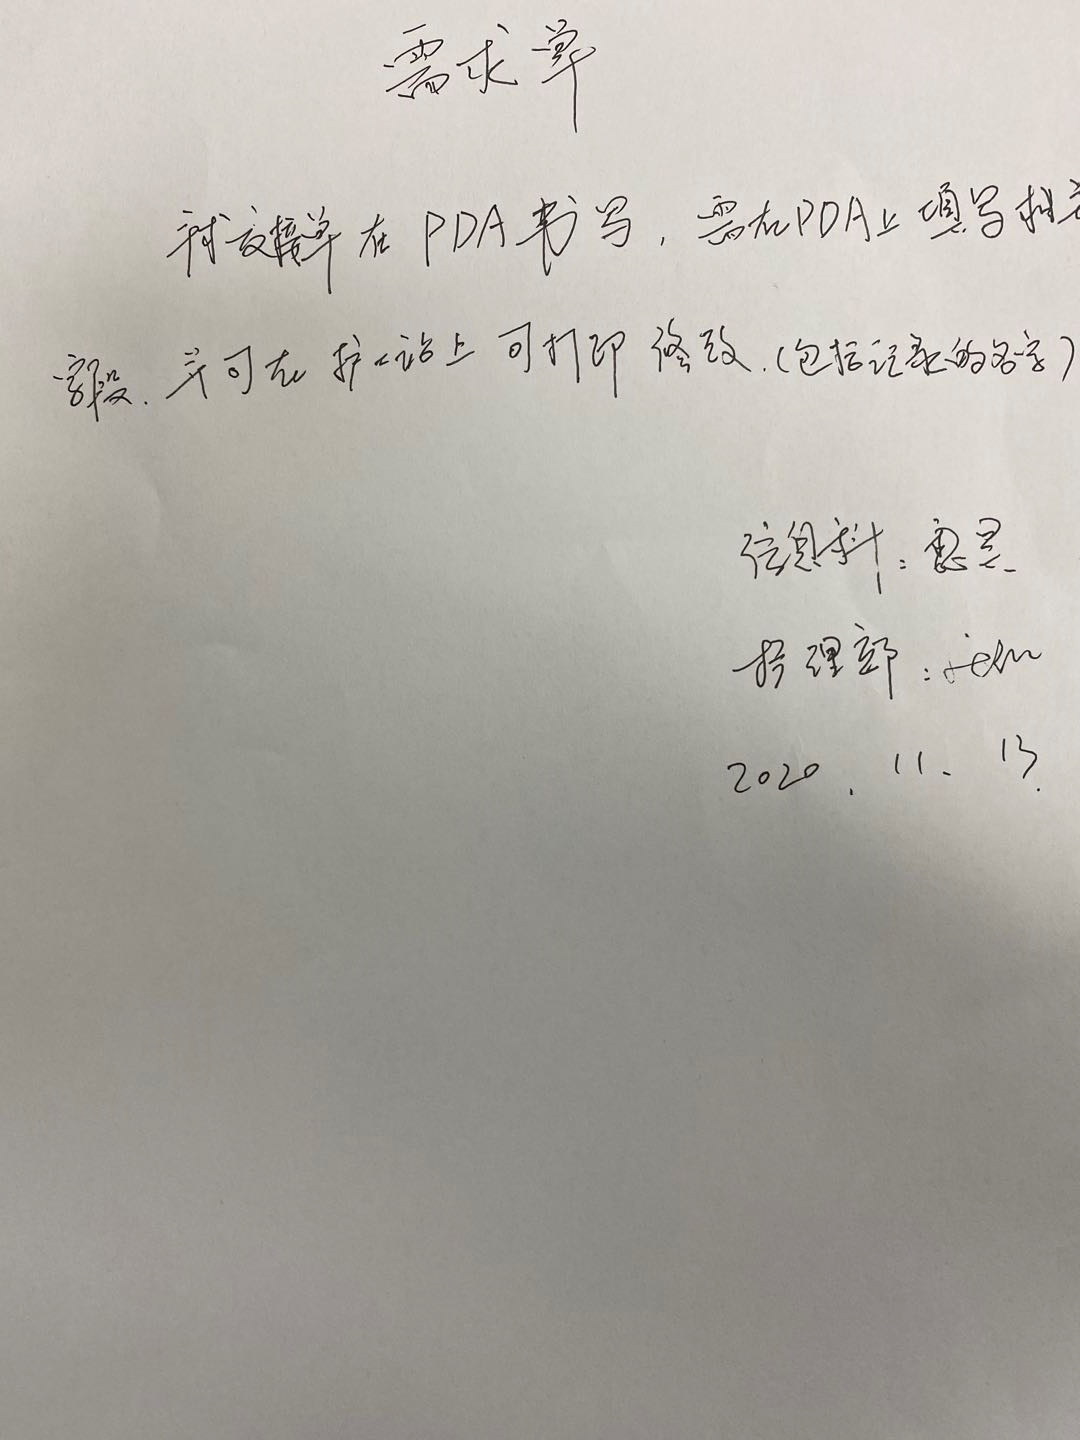 需求单
交接单在PDA书写,需在PDA上填写相关
字段.并可在护士站上可打印修改.(包括记录的名字)
信息科:
护理部:
2020.11.13.